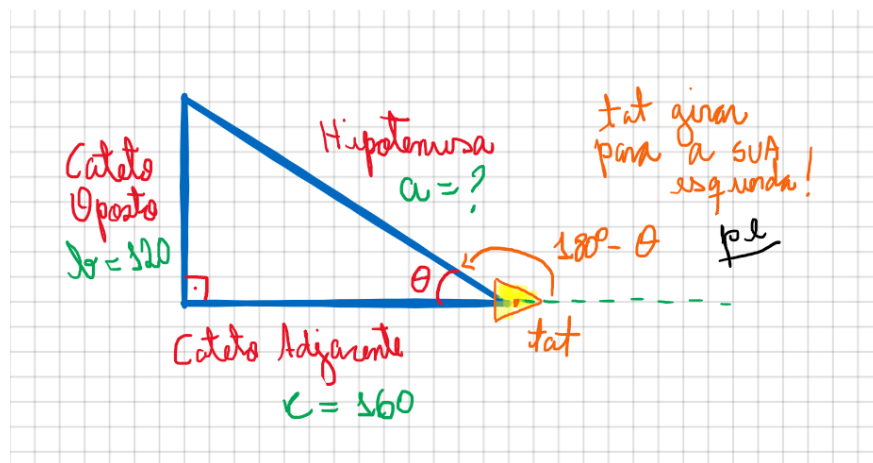 Cateto
Oposto
b = 120
Hipotenusa
a = ?
tat girar
para a SUA
esquerda!
180º - θ
pe
θ
tat
Cateto Adjacente
c = 160